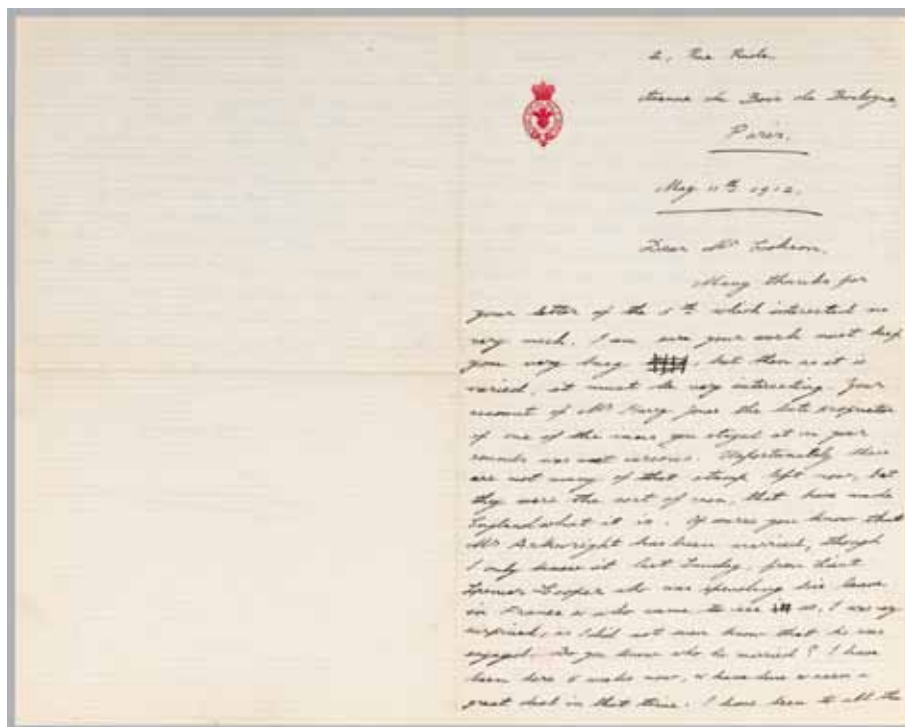 Avenue du Bois de Boulogne,
Paris.
May 11th 1912.
Dear Mr
Many thanks for
your letter of the 5th which interested me
very much. I am sure your work must keep
you very busy, but then as it is
varied, it must be very interesting. Your
account of Mr Harry Jones the late proprietor
of one of the inns you stayed at on your
rounds was most curious. Unfortunately there
are not many of that stamp left now, but
they were the sort of men, that have made
England what it is. Of course you know that
Mr Arkwright has been married, though
I only knew it last Sunday, from Lieut
Spencer Cooper who was spending his leave
in France & who came to see us, I was very
surprised, as I did not even know that he was
engaged. Do you know who he married? I have
been here weeks now, & have seen a
great deal in that time. I have been to all the